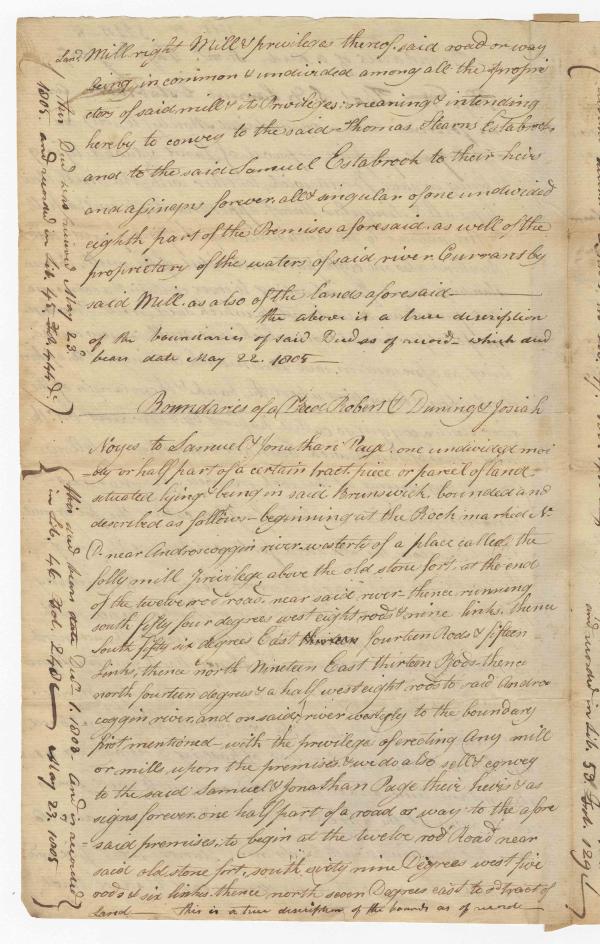 Land Mill right Mill & privileges thereof. said road or way
being in common & undivided among all the Propri
etors of said mill & its Privileges: meaning & intending
hereby to convey to the said Thomas Stearns Estabrook
and to the said Samuel Estabrook to their heirs
and assigns forever, all & singular of one undivided
eighth part of the Premises aforesaid. as well of the
proprietary of the waters of said river Currants by
said Mill. as also of the lands aforesaid
the above is a true description
of the boundaries of said Deed as of record which deed
bears date May 22. 1805
Boundaries of a Deed Robert D Duning & Josiah
Noyes to Samuel & Jonathan Page. one undivided moi
ety or half part of a certain tract, piece or parcel of land
situated lying & being in said Brunswick, bounded and
described as follows beginning at the Rock marked N
D. near Androscoggin river. westerly of a place called the
folly mill privilege, above the old stone fort, at the end
of the twelve rod road, near said river. thence running
south fifty four degrees west eight rods & nine links, thence
south fifty six degrees East fourteen Rods & fifteen
links, thence north Nineteen East thirteen Rods. thence
north fourteen degrees & a half west eight rods to said Andros
coggin river, and on said river westerly to the boundary
first mentioned with the privilege of erecting any mill
or mills upon the premises. & we do also sell & convey
to the said Samuel & Jonathan Page their heirs & as
signs forever. one half part of a road or way to the afore
said premises, to begin at the twelve rod Road near
said old stone fort, south sixty nine Degrees west five
rods & six links. thence north seven Degrees east to sd tract of
Land this is a true description of the bounds as of record
This Deed was received May 23d
1805. and recorded in Lib. 45. Fol. 444 &c
this deed bears date Decr 1. 1803 and is recorded
in Lib. 46. Fol. 240 May 23. 1805
and recorded in Lib. 53 Fol. 129